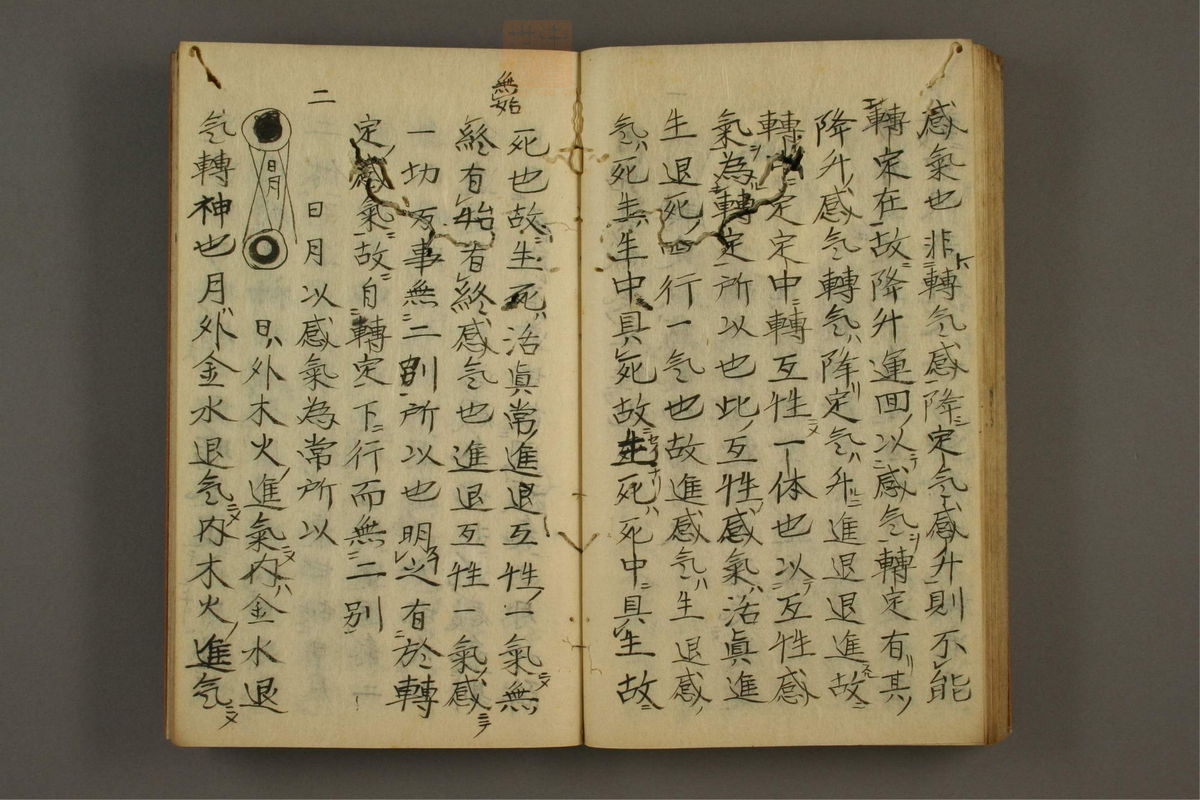 感氣也非轉气感降定气感升則不能
轉定在故降升運回以感气轉定有其
降升感气轉气降定气升進退退進故
轉中定定中轉互性一体也以互性感
氣為轉定所以也此互性感氣活眞進
生退死四行一气也故進感气生退感
气死生生中具死故生死死中具生故
死也故生死活眞常進退互性一氣無
無始
終有始有終感气也進退互性一氣感
一切万事無二別所以也明之有於轉
定感氣故自轉定下行而無二別
二 日月以感氣為常所以
日月
日外木火進氣内金水退
气轉神也月外金水退气内木火進气